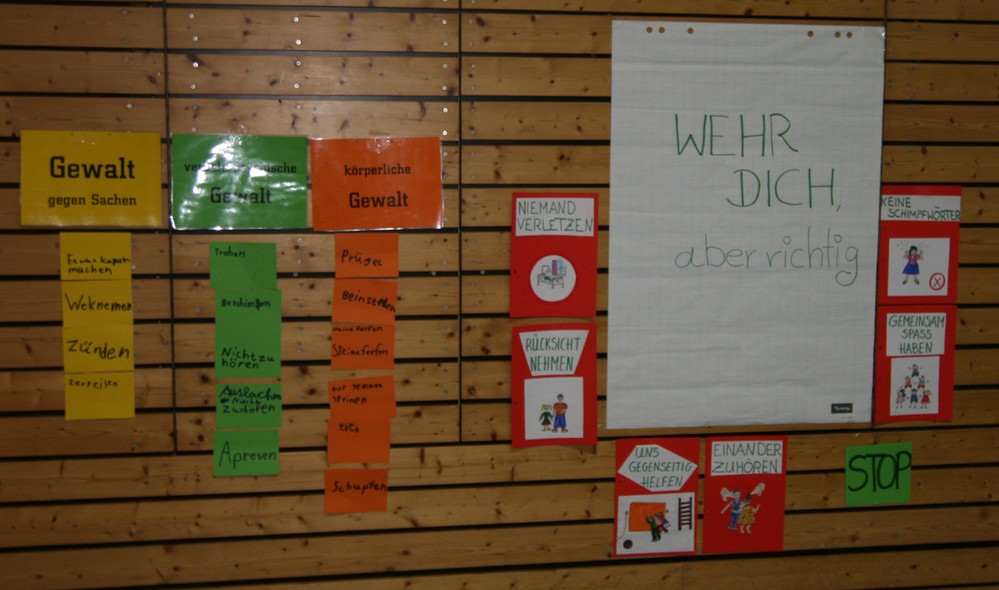 Gewalt
gegen Sachen
Etwas kaput
machen
Weknemen
Zünden
zereisen
Gewalt
Trohen
Beschimpfen
Nicht zu
hören
Auslachen
Nicht
zuhören
Apresen
körperliche
Gewalt
Prügel
Beinstellen
Steineferfen
auf jemand
sprinen
töta
Schupfen
NIEMAND
VERLETZEN
RÜCKSICHT
NEHMEN
WEHR
DICH,
aber richtig
KEINE
SCHIMPFWÖRTER
GEMEINSAM
SPASS
HABEN
UNS
GEGENSEITIG
HELFEN
EINANDER
ZUHÖREN
STOP